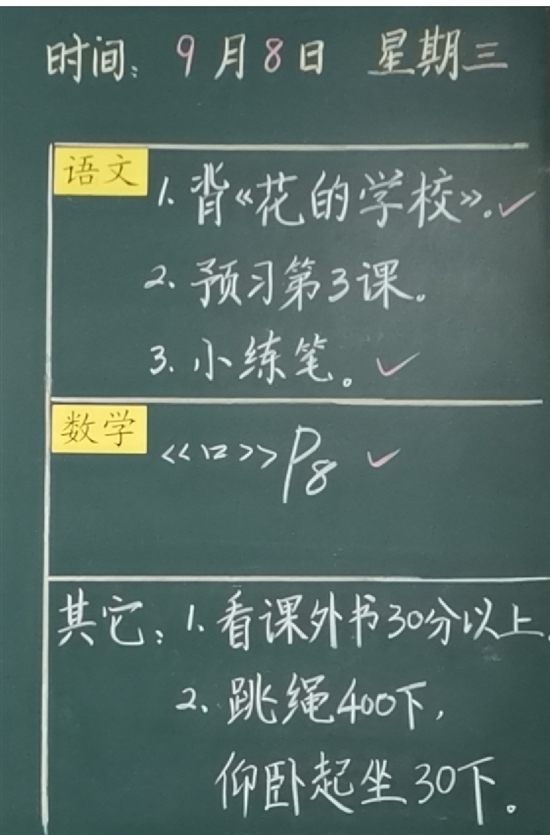 时间：9月8日 星期三
语文
1.背《花的学校》。✓
2.预习第3课。
3.小练笔。✓
数学
《口》P8 ✓
其它：1.看课外书30分以上.
2、跳绳400下，
仰卧起坐30下。